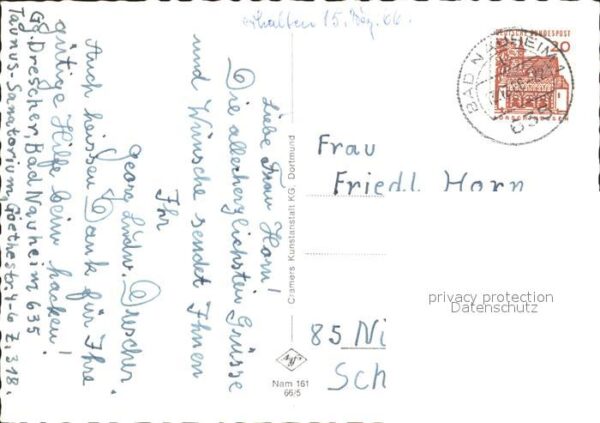 erhalten 15. Dez. 66.
Liebe Frau Horn!
Die allerherzlichsten Grüsse
und Wünsche sendet Ihnen
Ihr
Georg Ludw. Drescher
Auch heissen Dank für Ihre
gütige Hilfe beim packen!
Gg. Drescher, Bad Nauheim 635
Taunus-Sanatorium, Goethestr. 4-6 Z. 318.
Cramers Kunstanstalt KG. Dortmund
Nam 161
66/5
DEUTSCHE BUNDESPOST
20
BAD NAUHEIM 1
Frau
Friedl. Horn
85 Ni
Sch
privacy protection
Datenschutz